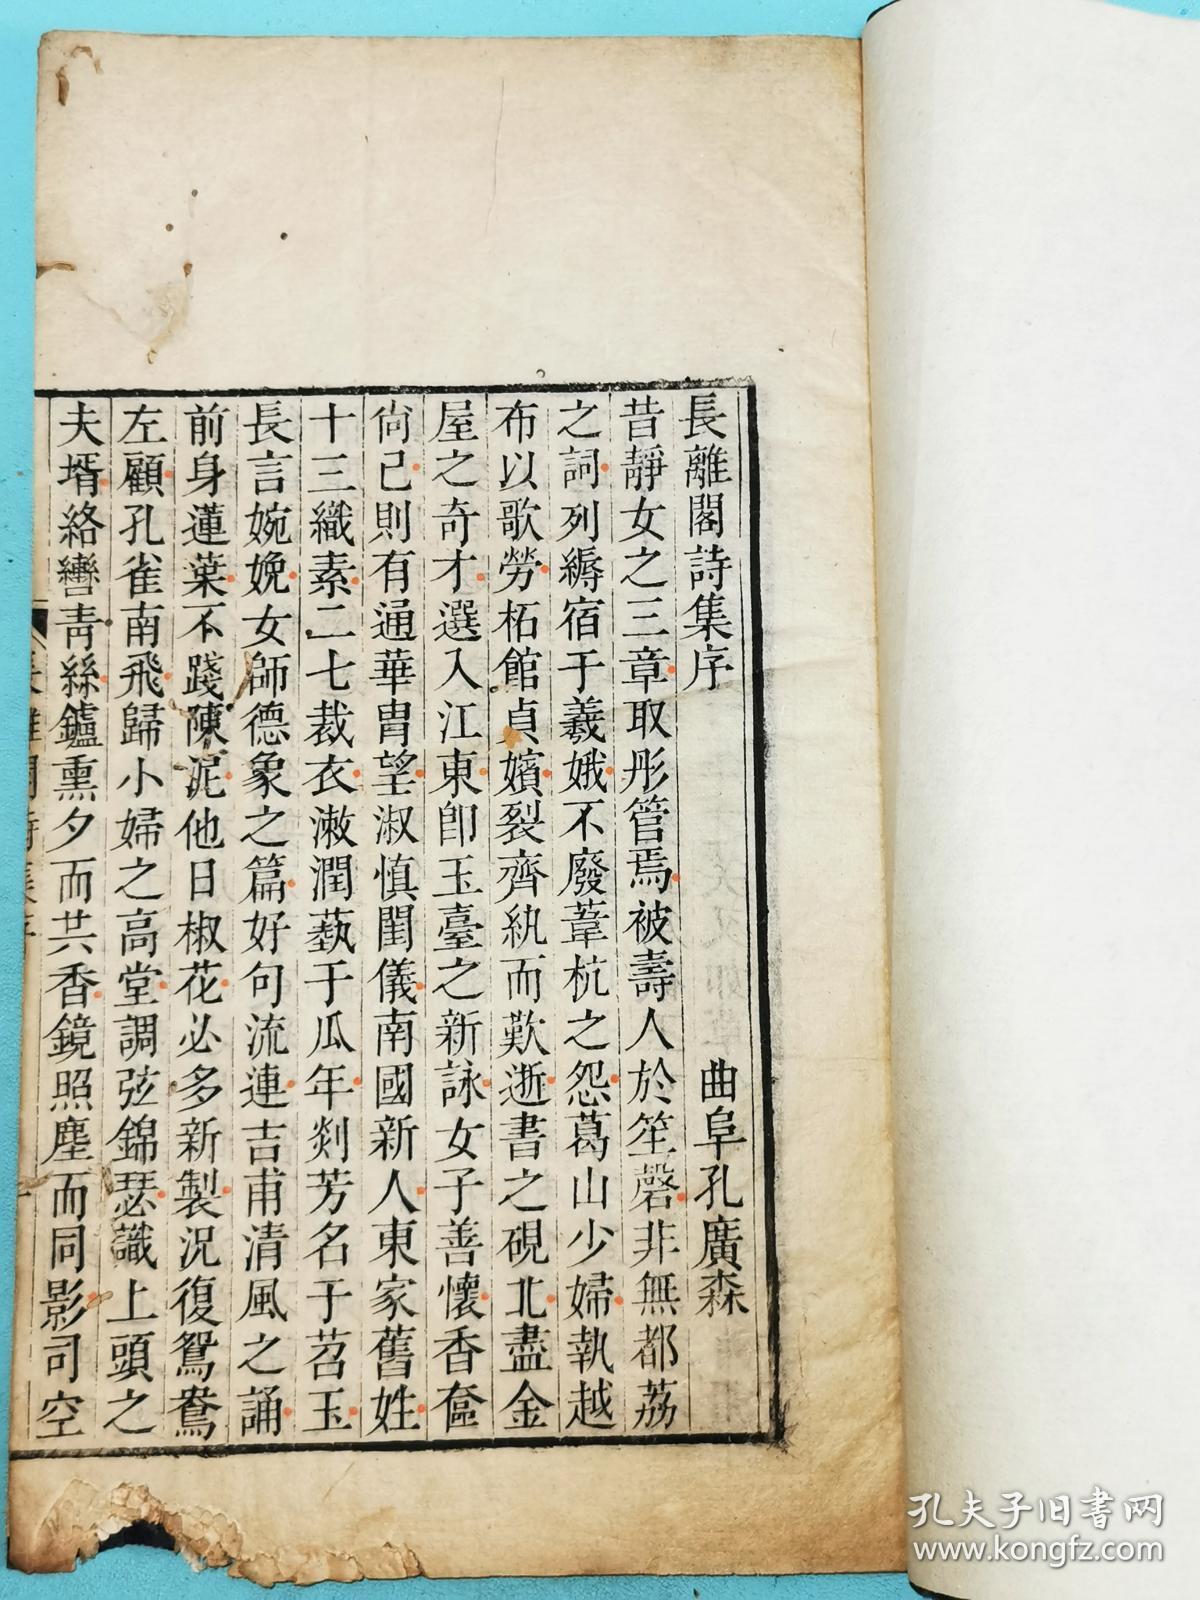 長離閣詩集序
曲阜孔廣森
昔靜女之三章取彤管焉被壽人於笙磬非無都荔
之詞列縟宿于羲娥不廢葦杭之怨葛山少婦執越
布以歌勞柘館貞嬪裂齊紈而歎逝書之硯北盡金
屋之奇才選入江東卽玉臺之新詠女子善懷香奩
尙已則有通華冑望淑慎閨儀南國新人東家舊姓
十三織素二七裁衣漱潤蓺于瓜年剡芳名于苕玉
長言婉娩女師德象之篇好句流連吉甫清風之誦
前身蓮葉不踐陳泥他日椒花必多新製況復鴛鴦
左顧孔雀南飛歸小婦之高堂調弦錦瑟識上頭之
夫壻絡轡青絲鑪熏夕而共香鏡照塵而同影司空
孔夫子旧书网
www.kongfz.com